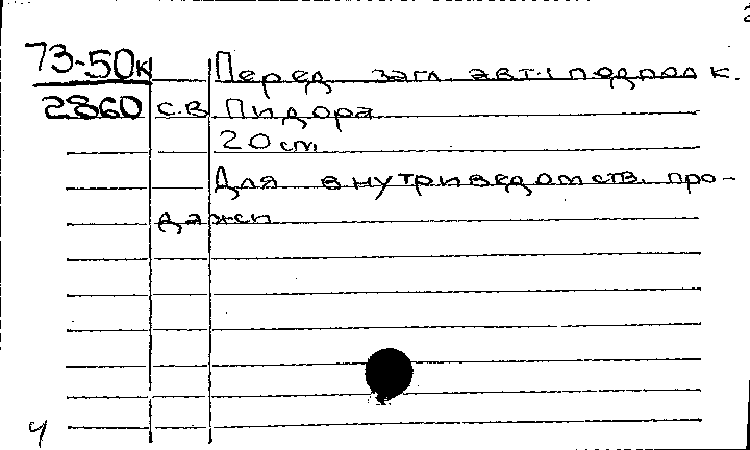 73-50к Перед загл. авт.: подполк.
2860 С.В. Пидора
20 см.
Для внутриведомств. про-
дажи
4